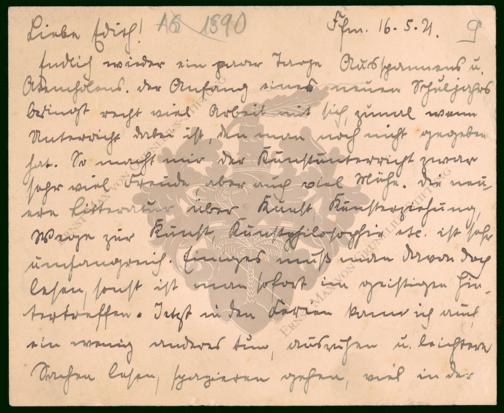 Liebe Edith! AG 1890 Ffm. 16.5.21. 9
Endlich wieder ein paar Tage Ausspannens u.
Atemholens. Der Anfang eines neuen Schuljahrs
bringt recht viel Arbeit mit sich, zumal wenn
Unterricht dabei ist, den man noch nicht gegeben
hat. So macht mir der Kunstunterricht zwar
sehr viel Freude aber auch viel Mühe. Die neu-
ere Litteratur über Kunst, Kunsterziehung,
Wege zur Kunst, Kunstphilosophie etc. ist sehr
umfangreich. Einiges muß man davon doch
lesen, sonst ist man sofort im geistigen Hin-
tertreffen. Jetzt in den Ferien kann ich auch
ein wenig anderes tun, ausruhen u. leichtere
Sachen lesen, spazieren gehen, viel in der